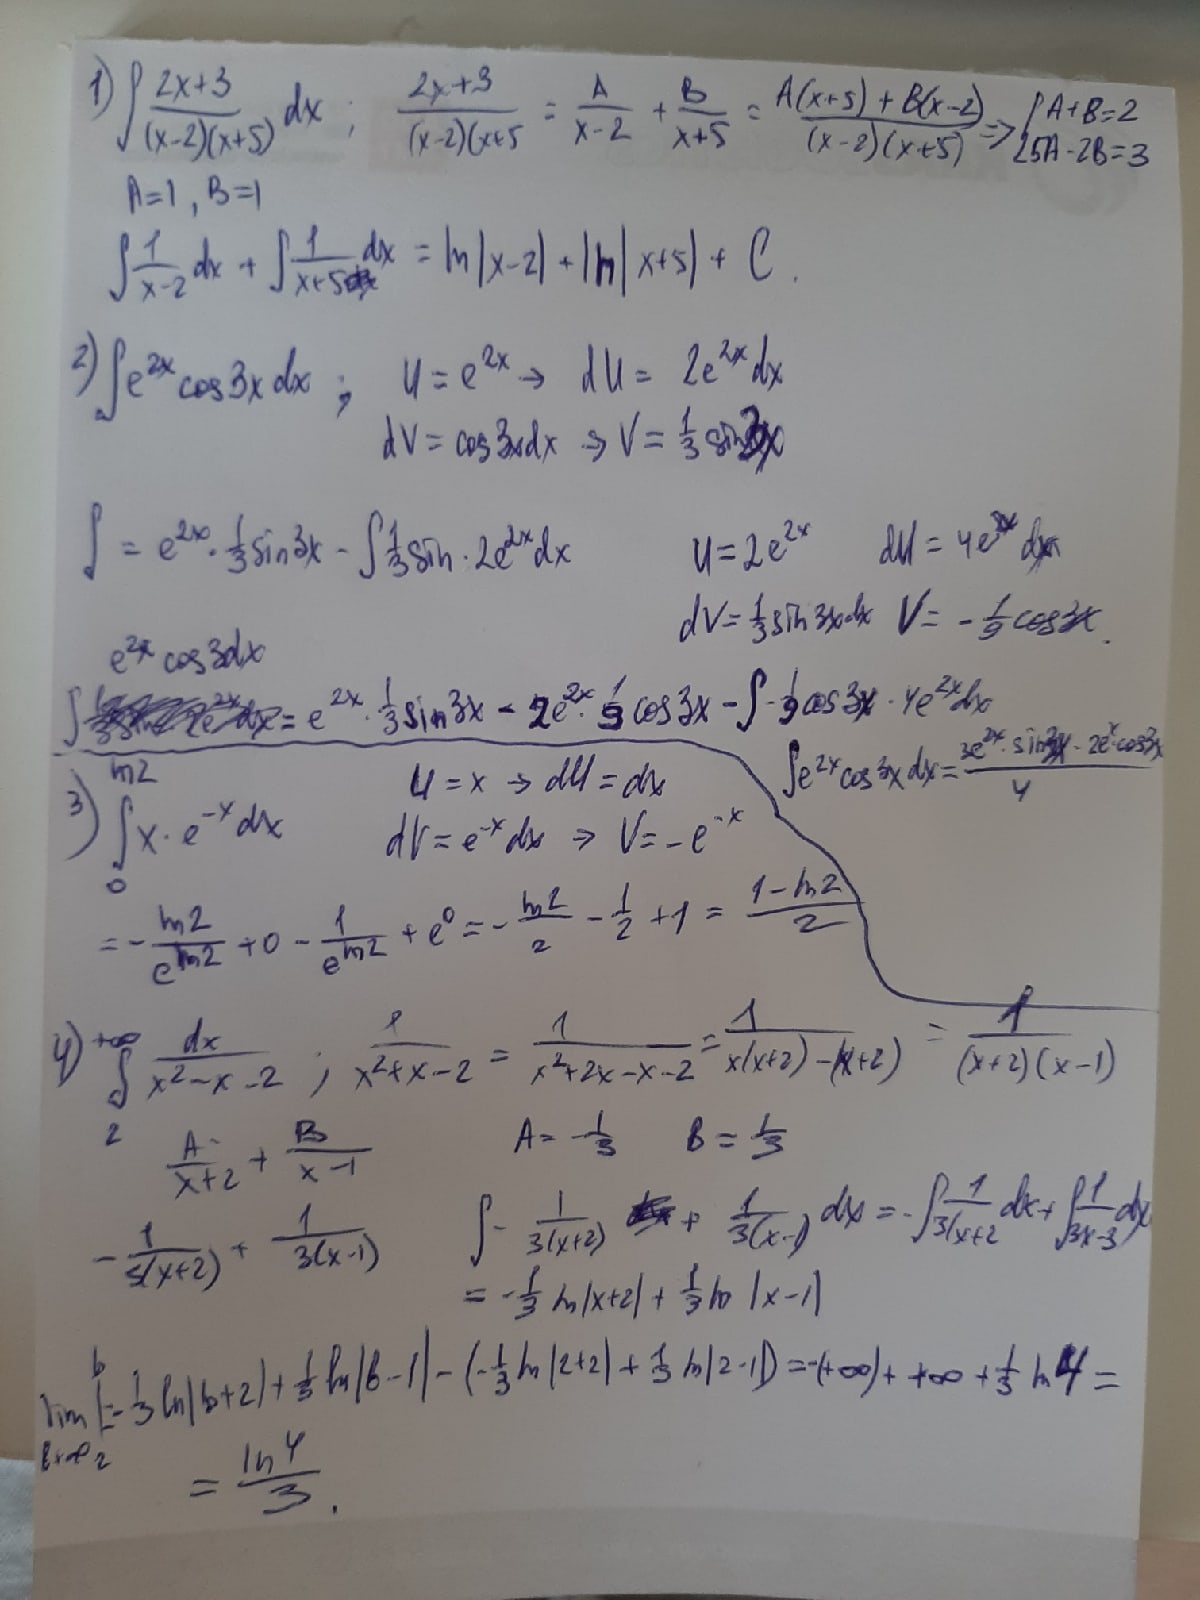 1) ∫ (2x+3)/((x-2)(x+5)) dx ; (2x+3)/((x-2)(x+5 = A/(x-2) + B/(x+5) = (A(x+5) + B(x-2))/((x-2)(x+5)) => { A+B=2
5A-2B=3
A=1, B=1
∫ 1/(x-2) dx + ∫ 1/(x+5) dx = ln|x-2| + ln|x+5| + C.
2) ∫ e^{2x} cos3x dx ; U = e^{2x} → dU = 2e^{2x} dx
dV = cos3x dx → V = 1/3 sin3x
∫ = e^{2x} · 1/3 sin3x - ∫ 1/3 sin · 2e^{2x} dx U = 2e^{2x} dU = 4e^{2x} dx
dV = 1/3 sin3x dx V = -1/9 cos3x.
e^{2x} cos3dx
∫ = e^{2x} · 1/3 sin3x - 2e^{2x} · 1/9 cos3x - ∫ -1/9 cos3x · 4e^{2x} dx
∫ e^{2x} cos3x dx = (3e^{2x} · sin3x - 2e^{x} · cos3x)/4
3) ∫_0^{ln2} x · e^{-x} dx U = x → dU = dx
dV = e^{-x} dx → V = -e^{-x}
= - ln2/e^{ln2} + 0 - 1/e^{ln2} + e^0 = - ln2/2 - 1/2 + 1 = (1-ln2)/2
4) ∫_2^{+∞} dx/(x²-x-2) ; 1/(x²+x-2) = 1/(x²+2x-x-2) = 1/(x(x+2)-(x+2)) = 1/((x+2)(x-1))
A/(x+2) + B/(x-1) A = -1/3 B = 1/3
- 1/(3(x+2)) + 1/(3(x-1)) ∫ - 1/(3(x+2)) + 1/(3(x-1)) dx = - ∫ 1/(3(x+2 dx + ∫ 1/(3x-3) dx
= -1/3 ln|x+2| + 1/3 ln|x-1|
lim_{b→∞} |_2^b = -1/3 ln|b+2| + 1/3 ln|b-1| - (-1/3 ln|2+2| + 1/3 ln|2-1|) = -(+∞) + +∞ + 1/3 ln4 =
= ln4/3.